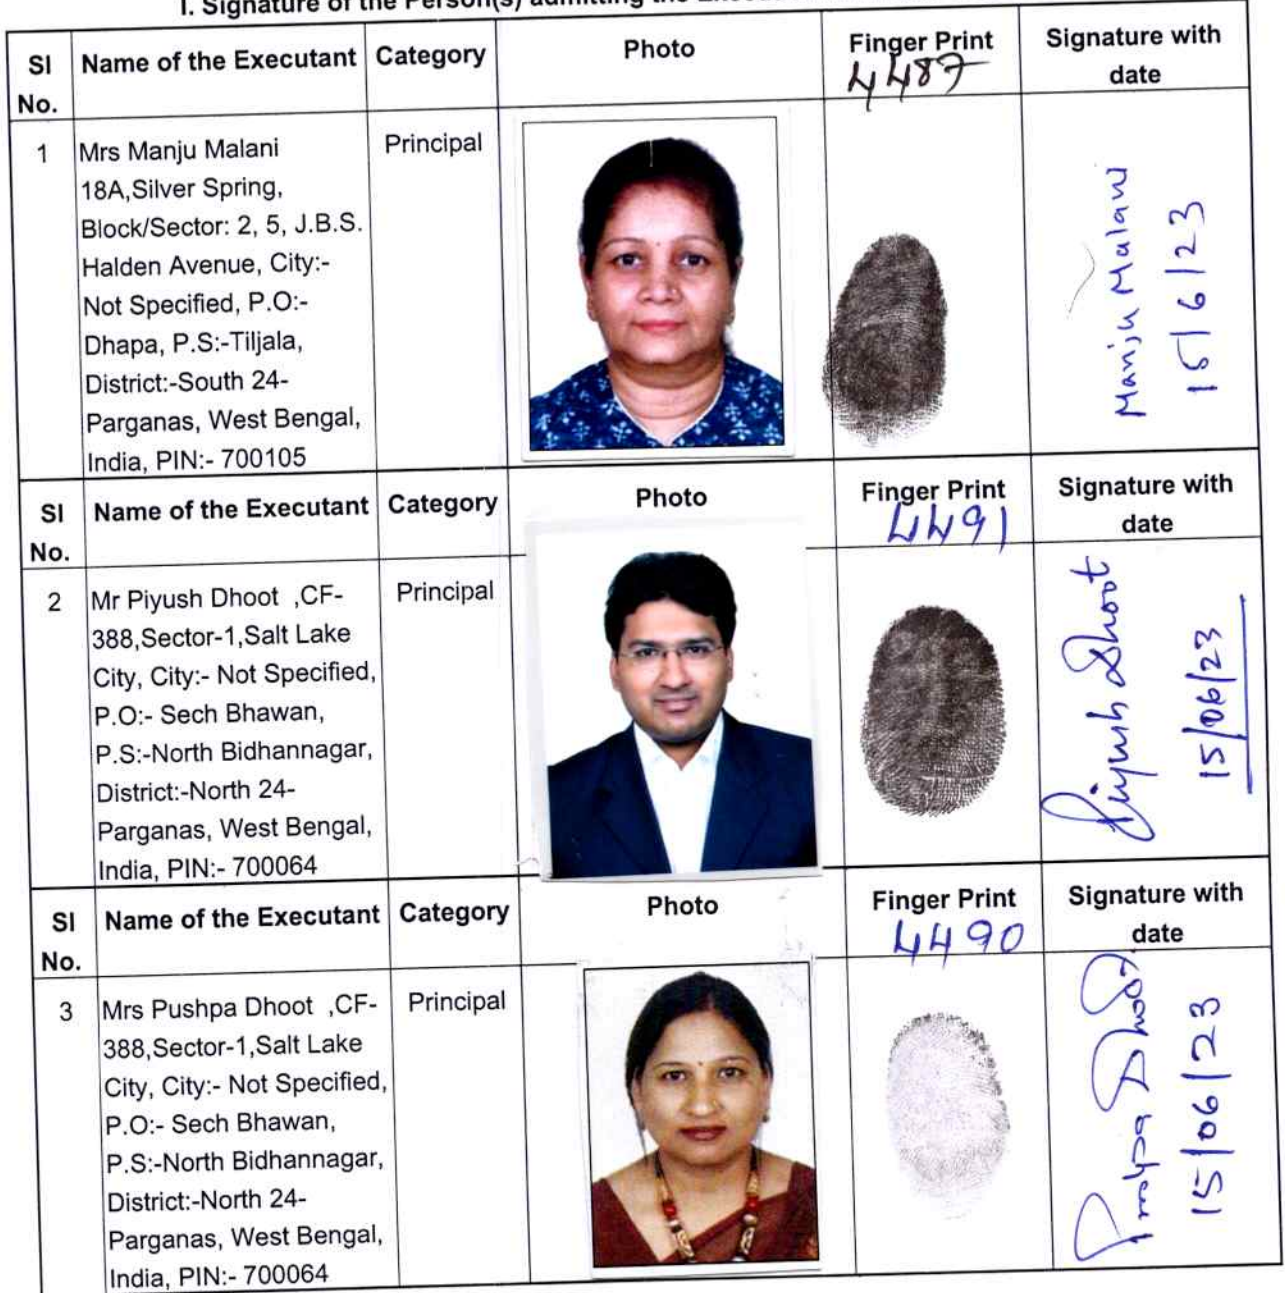 I. Signature of the Person(s) admitting the
Sl No. Name of the Executant Category Photo Finger Print Signature with date
4487
1 Mrs Manju Malani Principal
18A,Silver Spring,
Block/Sector: 2, 5, J.B.S.
Halden Avenue, City:-
Not Specified, P.O:-
Dhapa, P.S:-Tiljala,
District:-South 24-
Parganas, West Bengal,
India, PIN:- 700105
Manju Malani
15/6/23
Sl No. Name of the Executant Category Photo Finger Print Signature with date
4491
2 Mr Piyush Dhoot ,CF- Principal
388,Sector-1,Salt Lake
City, City:- Not Specified,
P.O:- Sech Bhawan,
P.S:-North Bidhannagar,
District:-North 24-
Parganas, West Bengal,
India, PIN:- 700064
Piyush Dhoot
15/06/23
Sl No. Name of the Executant Category Photo Finger Print Signature with date
4490
3 Mrs Pushpa Dhoot ,CF- Principal
388,Sector-1,Salt Lake
City, City:- Not Specified,
P.O:- Sech Bhawan,
P.S:-North Bidhannagar,
District:-North 24-
Parganas, West Bengal,
India, PIN:- 700064
Pushpa Dhoot
15/06/23